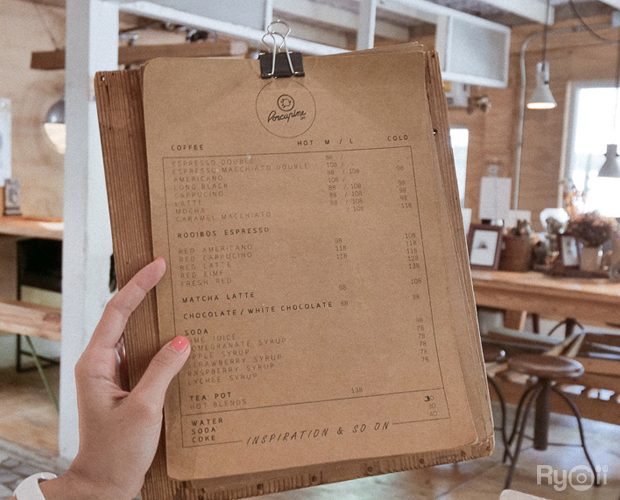 Porcupine
COFFEE HOT M / L COLD
ESPRESSO DOUBLE 98 / -
ESPRESSO MACCHIATO DOUBLE 108 / -
AMERICANO 98 / 108 98
LONG BLACK
CAPPUCINO 98 / 108 98
LATTE 98 / 108 98
MOCHA / 108 108
CARAMEL MACCHIATO 118
ROOIBOS ESPRESSO
RED AMERICANO 98 108
RED CAPPUCINO 118 118
RED LATTE 118 118
RED LIME 128
FRESH RED 138
MATCHA LATTE 98 108
CHOCOLATE / WHITE CHOCOLATE 88 98
SODA
LIME JUICE 98
POMEGRANATE SYRUP 78
APPLE SYRUP 78
STRAWBERRY SYRUP 78
RASPBERRY SYRUP 78
LYCHEE SYRUP
TEA POT
HOT BLENDS 118
WATER
SODA 30
COKE 40
INSPIRATION & SO ON
Ryoii